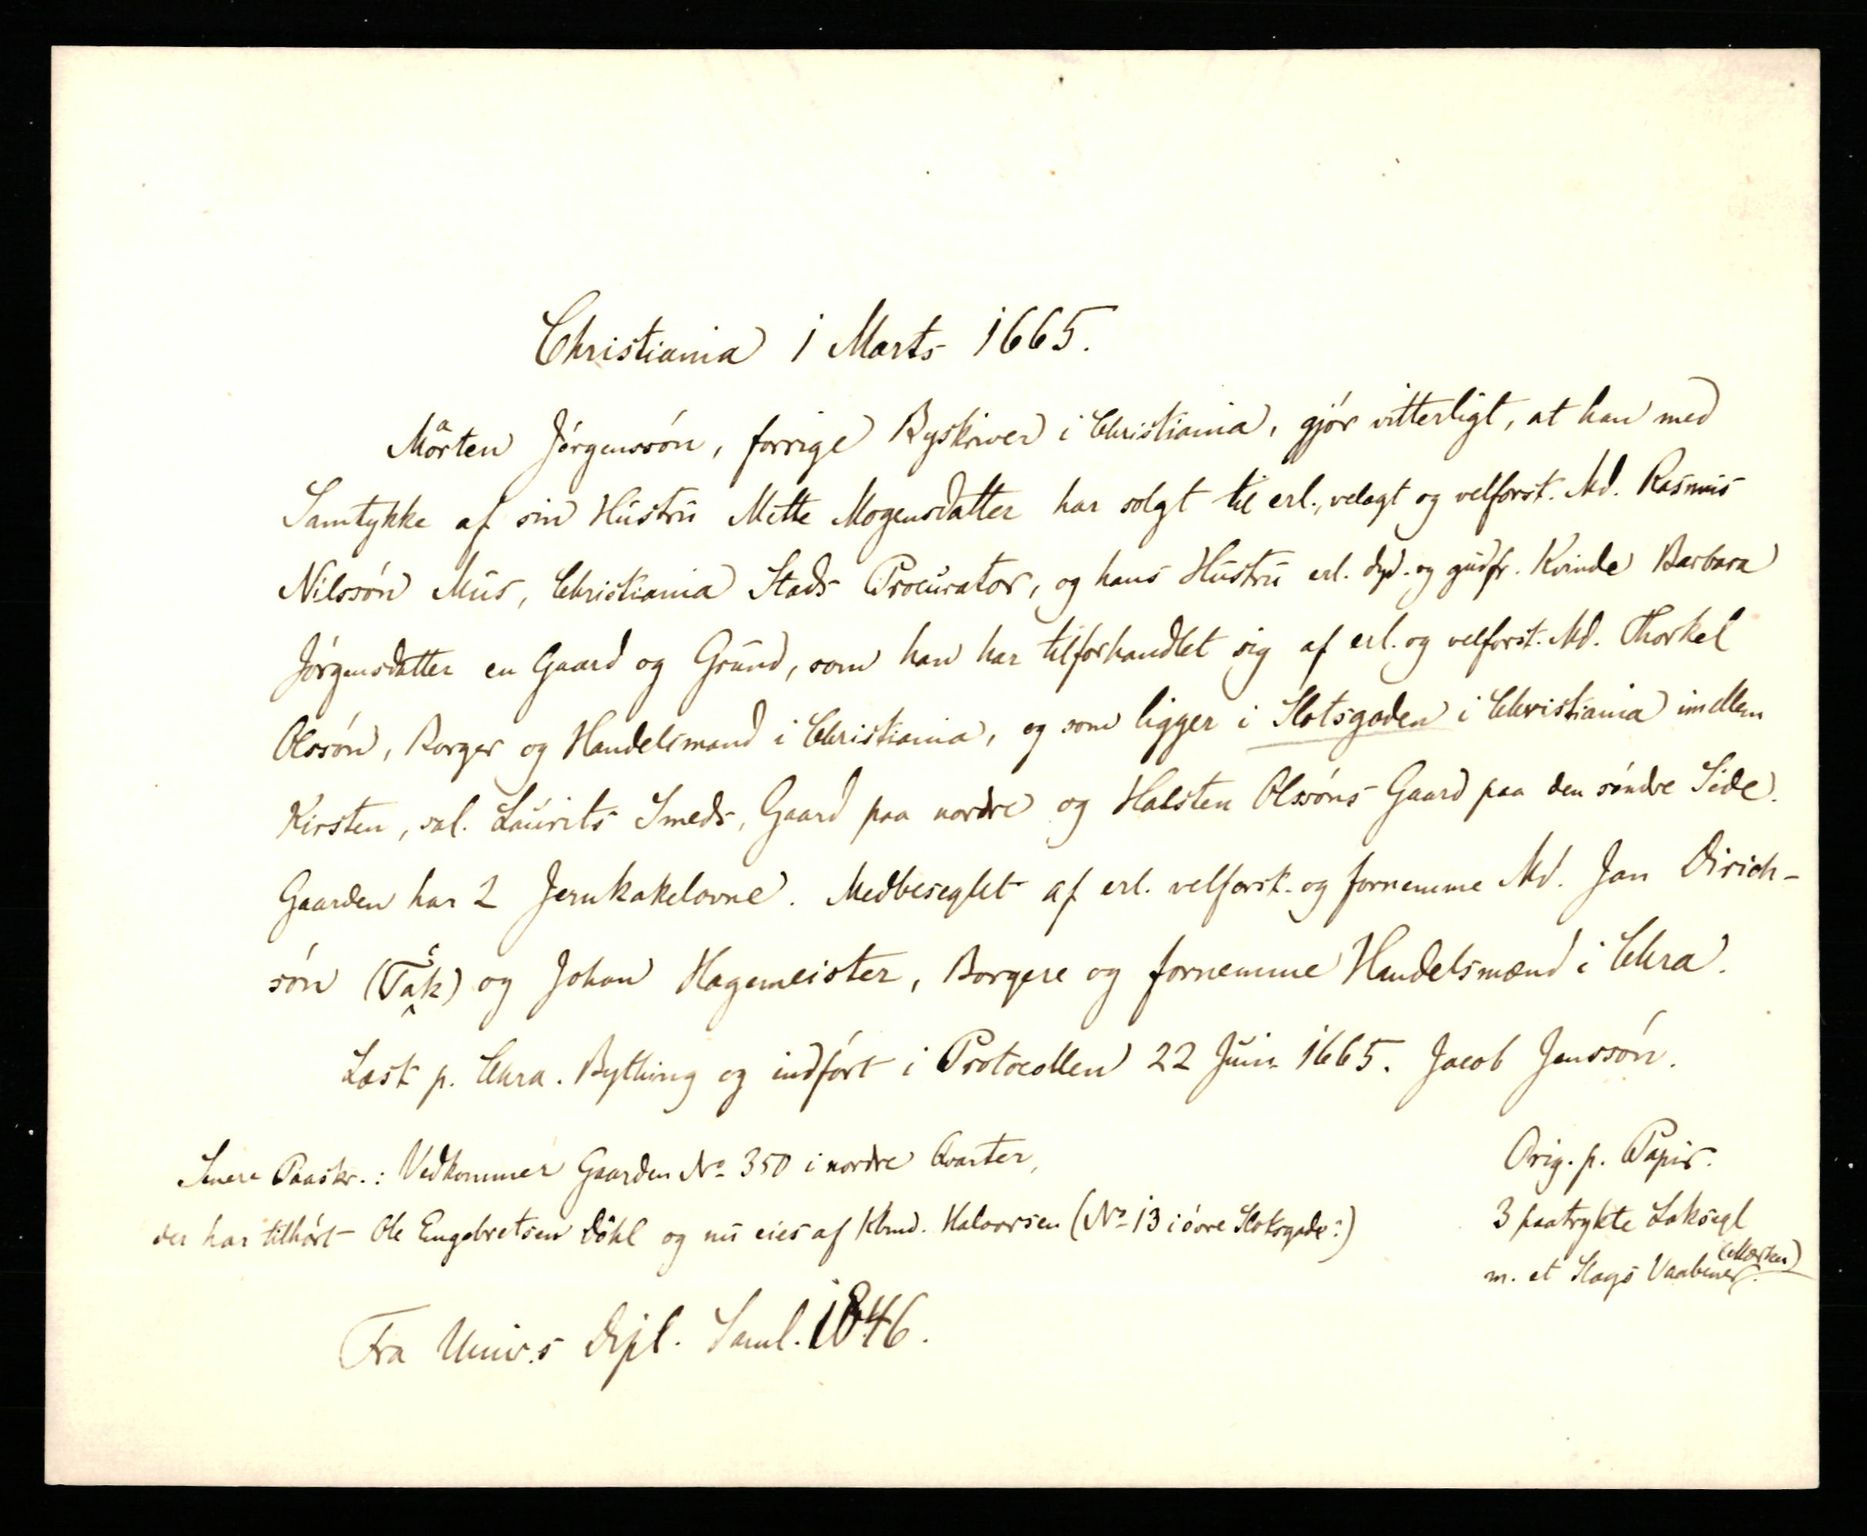 Christiania 1 Marts 1665.
Mårten Jörgenssön, forrige Byskriver i Christiania, gjör vitterligt, at han med
Samtykke af sin Hustru Mette Mogensdatter har solgt til erl., velagt og velforst. Md. Rasmus
Nilssön Mus, Christiania Stads Procurator, og hans Hustru erl. dyd. og gudfr. Kvinde Barbara
Jörgensdatter en Gaard og Grund, som han har tilforhandlet sig af erl. og velforst. Md. Thorkel
Olssön, Borger og Handelsmand i Christiania, og som ligger i Slotsgaden i Christiania imellem
Kirsten, sal. Laurits Smeds, Gaard paa nordre og Halsten Olssöns Gaard paa den söndre Side.
Gaarden har 2 Jernkakelovne. Medbeseglet af erl. velforst. og fornemme Md. Jan Dirich-
sön (Tak) og Johan Hagemeister, Borgere og fornemme Handelsmænd i Chra.
Læst p. Chra. Bything og indfört i Protocollen 22 Juni 1665. Jacob Jenssön.
Senere Paaskr.: Vedkommer Gaarden No 350 i nordre Qvarter,
der har tilhört Ole Engebretsen Döhl og nu eies af Kbmd. Halvorsen (No 13 i övre Slotsgade:)
Orig. p. Papir.
3 paatrykte Laksegl
(Mærker)
m. et Slags Vaabener.
Fra Univ.s Dipl. Saml. 1846.